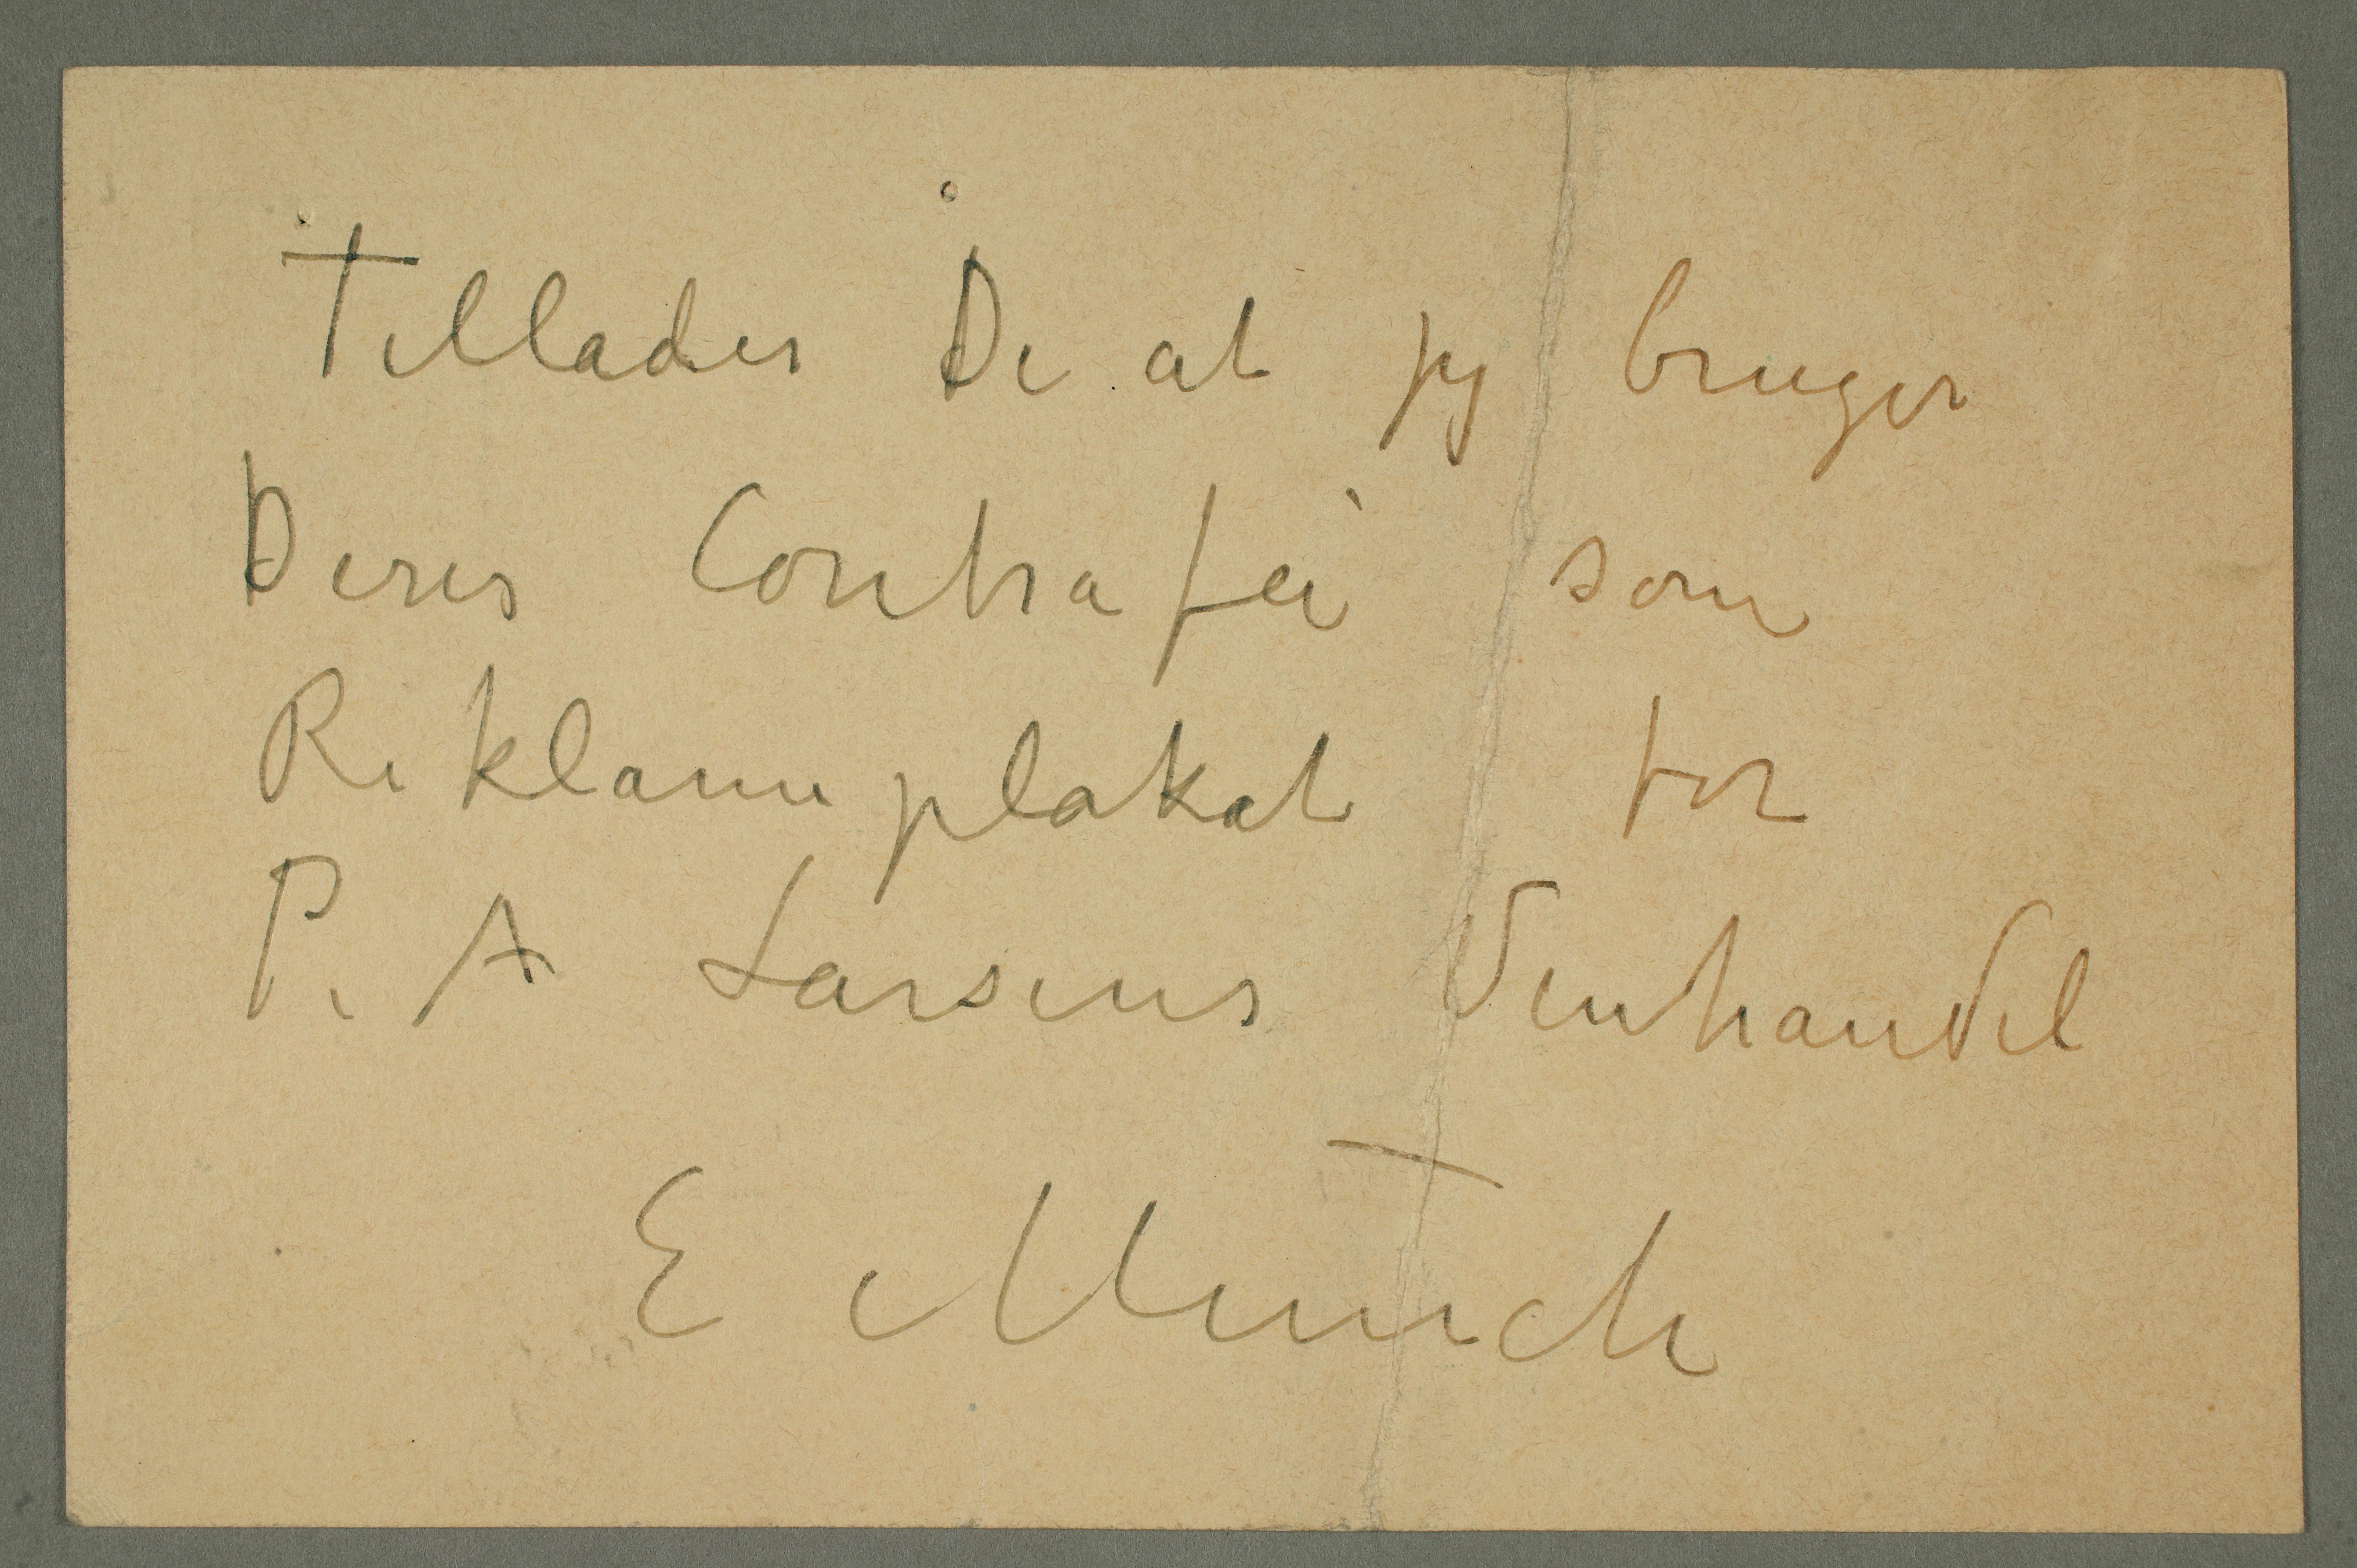 Tillader De at jeg bruger
Deres Contrafei som
Reklameplakat for
P. A Larsens Vinhandel
E Munch